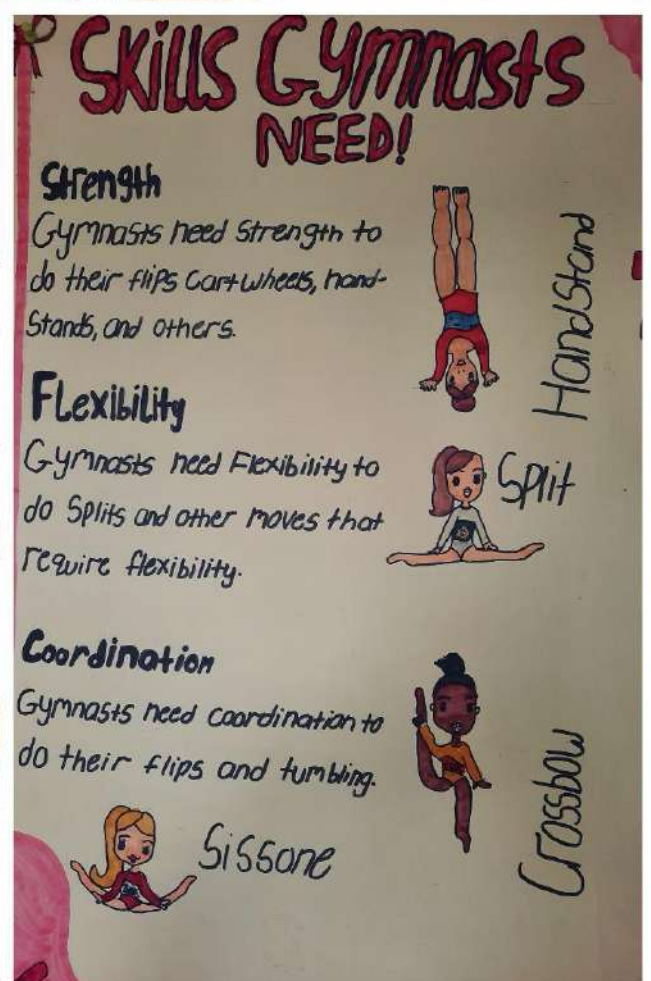 Skills Gymnasts
NEED!
Strength
Gymnasts need Strength to
do their flips Cartwheels, hand-
Stands, and others.
Handstand
Flexibility
Gymnasts need Flexibility to
do Splits and other moves that
require flexibility.
Split
Coordination
Gymnasts need coordination to
do their flips and tumbling.
Crossbow
Sissone